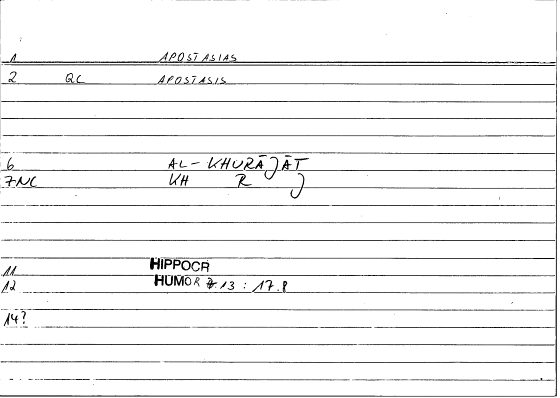 1 APOSTASIAS
2 QC APOSTASIS
6 AL-KHURĀJĀT
7NC KH R J
11 HIPPOCR
12 HUMOR 7.13 : 17.8
14?